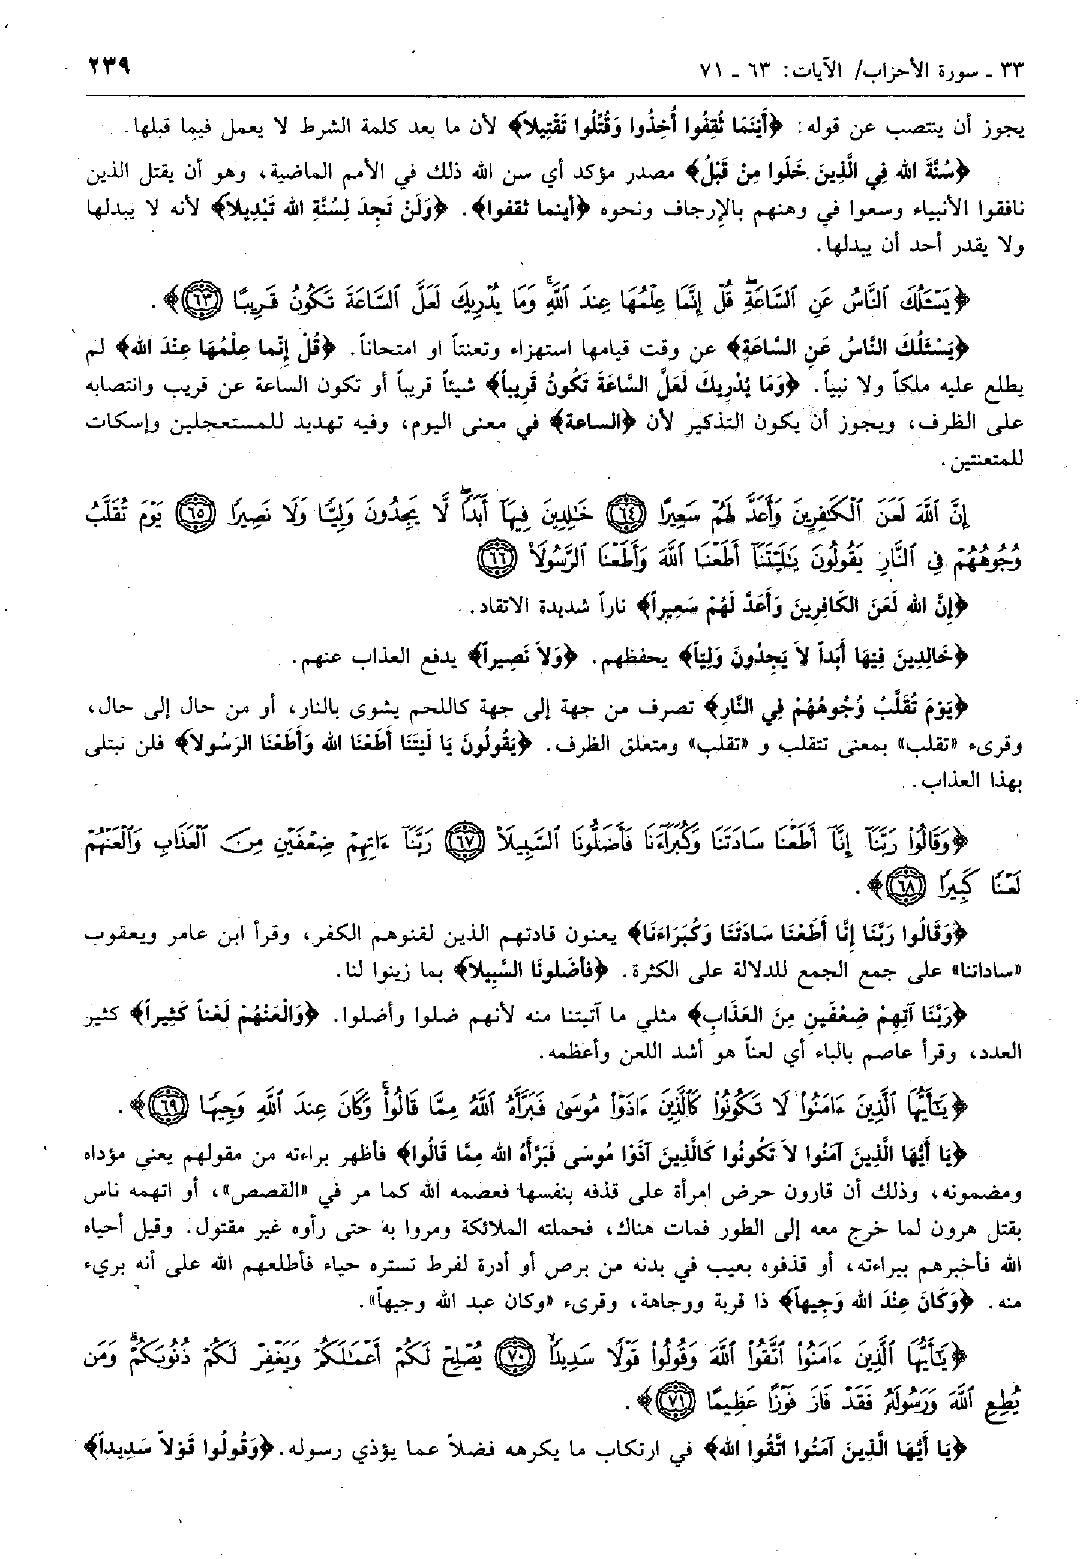 ٣٣ ـ سورة الأحزاب/ الآيات: ٦٣ ـ ٧١ ٢٣٩
يجوز أن ينتصب عن قوله: ﴿أَيْنَمَا ثُقِفُوا أُخِذُوا وَقُتِّلُوا تَقْتِيلاً﴾ لأن ما بعد كلمة الشرط لا يعمل فيما قبلها.
﴿سُنَّةَ الله فِي الَّذِينَ خَلَوا مِنْ قَبْلُ﴾ مصدر مؤكد أي سن الله ذلك في الأمم الماضية، وهو أن يقتل الذين
نافقوا الأنبياء وسعوا في وهنهم بالإرجاف ونحوه ﴿أينما ثقفوا﴾. ﴿وَلَنْ تَجِدَ لِسُنَّةِ الله تَبْدِيلاً﴾ لأنه لا يبدلها
ولا يقدر أحد أن يبدلها.
﴿يَسْـَٔلُكَ ٱلنَّاسُ عَنِ ٱلسَّاعَةِۖ قُلْ إِنَّمَا عِلْمُهَا عِندَ ٱللَّهِۚ وَمَا يُدْرِيكَ لَعَلَّ ٱلسَّاعَةَ تَكُونُ قَرِيبًا ٦٣﴾.
﴿يَسْئَلُكَ النَّاسُ عَنِ السَّاعَةِ﴾ عن وقت قيامها استهزاء وتعنتاً او امتحاناً. ﴿قُلْ إِنَّما عِلْمُهَا عِنْدَ الله﴾ لم
يطلع عليه ملكاً ولا نبياً. ﴿وَمَا يُدْرِيكَ لَعَلَّ السَّاعَةَ تَكُونُ قَرِيباً﴾ شيئاً قريباً أو تكون الساعة عن قريب وانتصابه
على الظرف، ويجوز أن يكون التذكير لأن ﴿الساعة﴾ في معنى اليوم، وفيه تهديد للمستعجلين وإسكات
للمتعنتين.
إِنَّ ٱللَّهَ لَعَنَ ٱلْكَٰفِرِينَ وَأَعَدَّ لَهُمْ سَعِيرًا ٦٤ خَٰلِدِينَ فِيهَآ أَبَدًاۖ لَّا يَجِدُونَ وَلِيًّا وَلَا نَصِيرًا ٦٥ يَوْمَ تُقَلَّبُ
وُجُوهُهُمْ فِى ٱلنَّارِ يَقُولُونَ يَٰلَيْتَنَآ أَطَعْنَا ٱللَّهَ وَأَطَعْنَا ٱلرَّسُولَا۠ ٦٦
﴿إِنَّ الله لَعَنَ الكَافِرِينَ وَأَعَدَّ لَهُمْ سَعِيراً﴾ ناراً شديدة الاتقاد.
﴿خَالِدِينَ فِيْهَا أَبَداً لاَ يَجِدُونَ وَلِيّاً﴾ يحفظهم. ﴿وَلاَ نَصِيراً﴾ يدفع العذاب عنهم.
﴿يَوْمَ تُقَلَّبُ وُجُوهُهُمْ فِي النَّارِ﴾ تصرف من جهة إلى جهة كاللحم يشوى بالنار، أو من حال إلى حال،
وقرىء «تقلب» بمعنى تتقلب و «تقلب» ومتعلق الظرف. ﴿يَقُولُونَ يَا لَيْتَنَا أَطَعْنَا الله وَأَطَعْنَا الرَسُولا﴾ فلن نبتلى
بهذا العذاب.
﴿وَقَالُوا۟ رَبَّنَآ إِنَّآ أَطَعْنَا سَادَتَنَا وَكُبَرَآءَنَا فَأَضَلُّونَا ٱلسَّبِيلَا۠ ٦٧ رَبَّنَآ ءَاتِهِمْ ضِعْفَيْنِ مِنَ ٱلْعَذَابِ وَٱلْعَنْهُمْ
لَعْنًا كَبِيرًا ٦٨﴾.
﴿وَقَالُوا رَبَّنَا إِنَّا أَطَعْنَا سَادَتَنَا وَكُبَرَاءَنَا﴾ يعنون قادتهم الذين لقنوهم الكفر، وقرأ ابن عامر ويعقوب
«ساداتنا» على جمع الجمع للدلالة على الكثرة. ﴿فأضَلونَا السَّبِيلا﴾ بما زينوا لنا.
﴿رَبَّنَا آتِهِمْ ضِعْفَينِ مِنَ العَذَابِ﴾ مثلي ما آتيتنا منه لأنهم ضلوا وأضلوا. ﴿وَالْعَنْهُمْ لَعْناً كَثِيراً﴾ كثير
العدد، وقرأ عاصم بالباء أي لعناً هو أشد اللعن وأعظمه.
﴿يَٰٓأَيُّهَا ٱلَّذِينَ ءَامَنُوا۟ لَا تَكُونُوا۟ كَٱلَّذِينَ ءَاذَوْا۟ مُوسَىٰ فَبَرَّأَهُ ٱللَّهُ مِمَّا قَالُوا۟ۚ وَكَانَ عِندَ ٱللَّهِ وَجِيهًا ٦٩﴾.
﴿يَا أَيُّهَا الَّذِينَ آمَنُوا لاَ تَكُونُوا كَالَّذِينَ آذَوْا مُوسَى فَبَرَّأَهُ الله مِمَّا قَالُوا﴾ فأظهر براءته من مقولهم يعني مؤداه
ومضمونه، وذلك أن قارون حرض امرأة على قذفه بنفسها فعصمه الله كما مر في «القصص»، أو اتهمه ناس
بقتل هرون لما خرج معه إلى الطور فمات هناك، فحملته الملائكة ومروا به حتى رأوه غير مقتول. وقيل أحياه
الله فأخبرهم ببراءته، أو قذفوه بعيب في بدنه من برص أو أدرة لفرط تستره حياء فأطلعهم الله على أنه بريء
منه. ﴿وَكَانَ عِنْدَ الله وَجِيهاً﴾ ذا قربة ووجاهة، وقرىء «وكان عبد الله وجيهاً».
﴿يَٰٓأَيُّهَا ٱلَّذِينَ ءَامَنُوا۟ ٱتَّقُوا۟ ٱللَّهَ وَقُولُوا۟ قَوْلًا سَدِيدًا ٧٠ يُصْلِحْ لَكُمْ أَعْمَٰلَكُمْ وَيَغْفِرْ لَكُمْ ذُنُوبَكُمْۗ وَمَن
يُطِعِ ٱللَّهَ وَرَسُولَهُۥ فَقَدْ فَازَ فَوْزًا عَظِيمًا ٧١﴾.
﴿يَا أَيُّهَا الَّذِينَ آمَنُوا اتَّقُوا الله﴾ في ارتكاب ما يكرهه فضلاً عما يؤذي رسوله. ﴿وَقُولُوا قَوْلاً سَدِيداً﴾